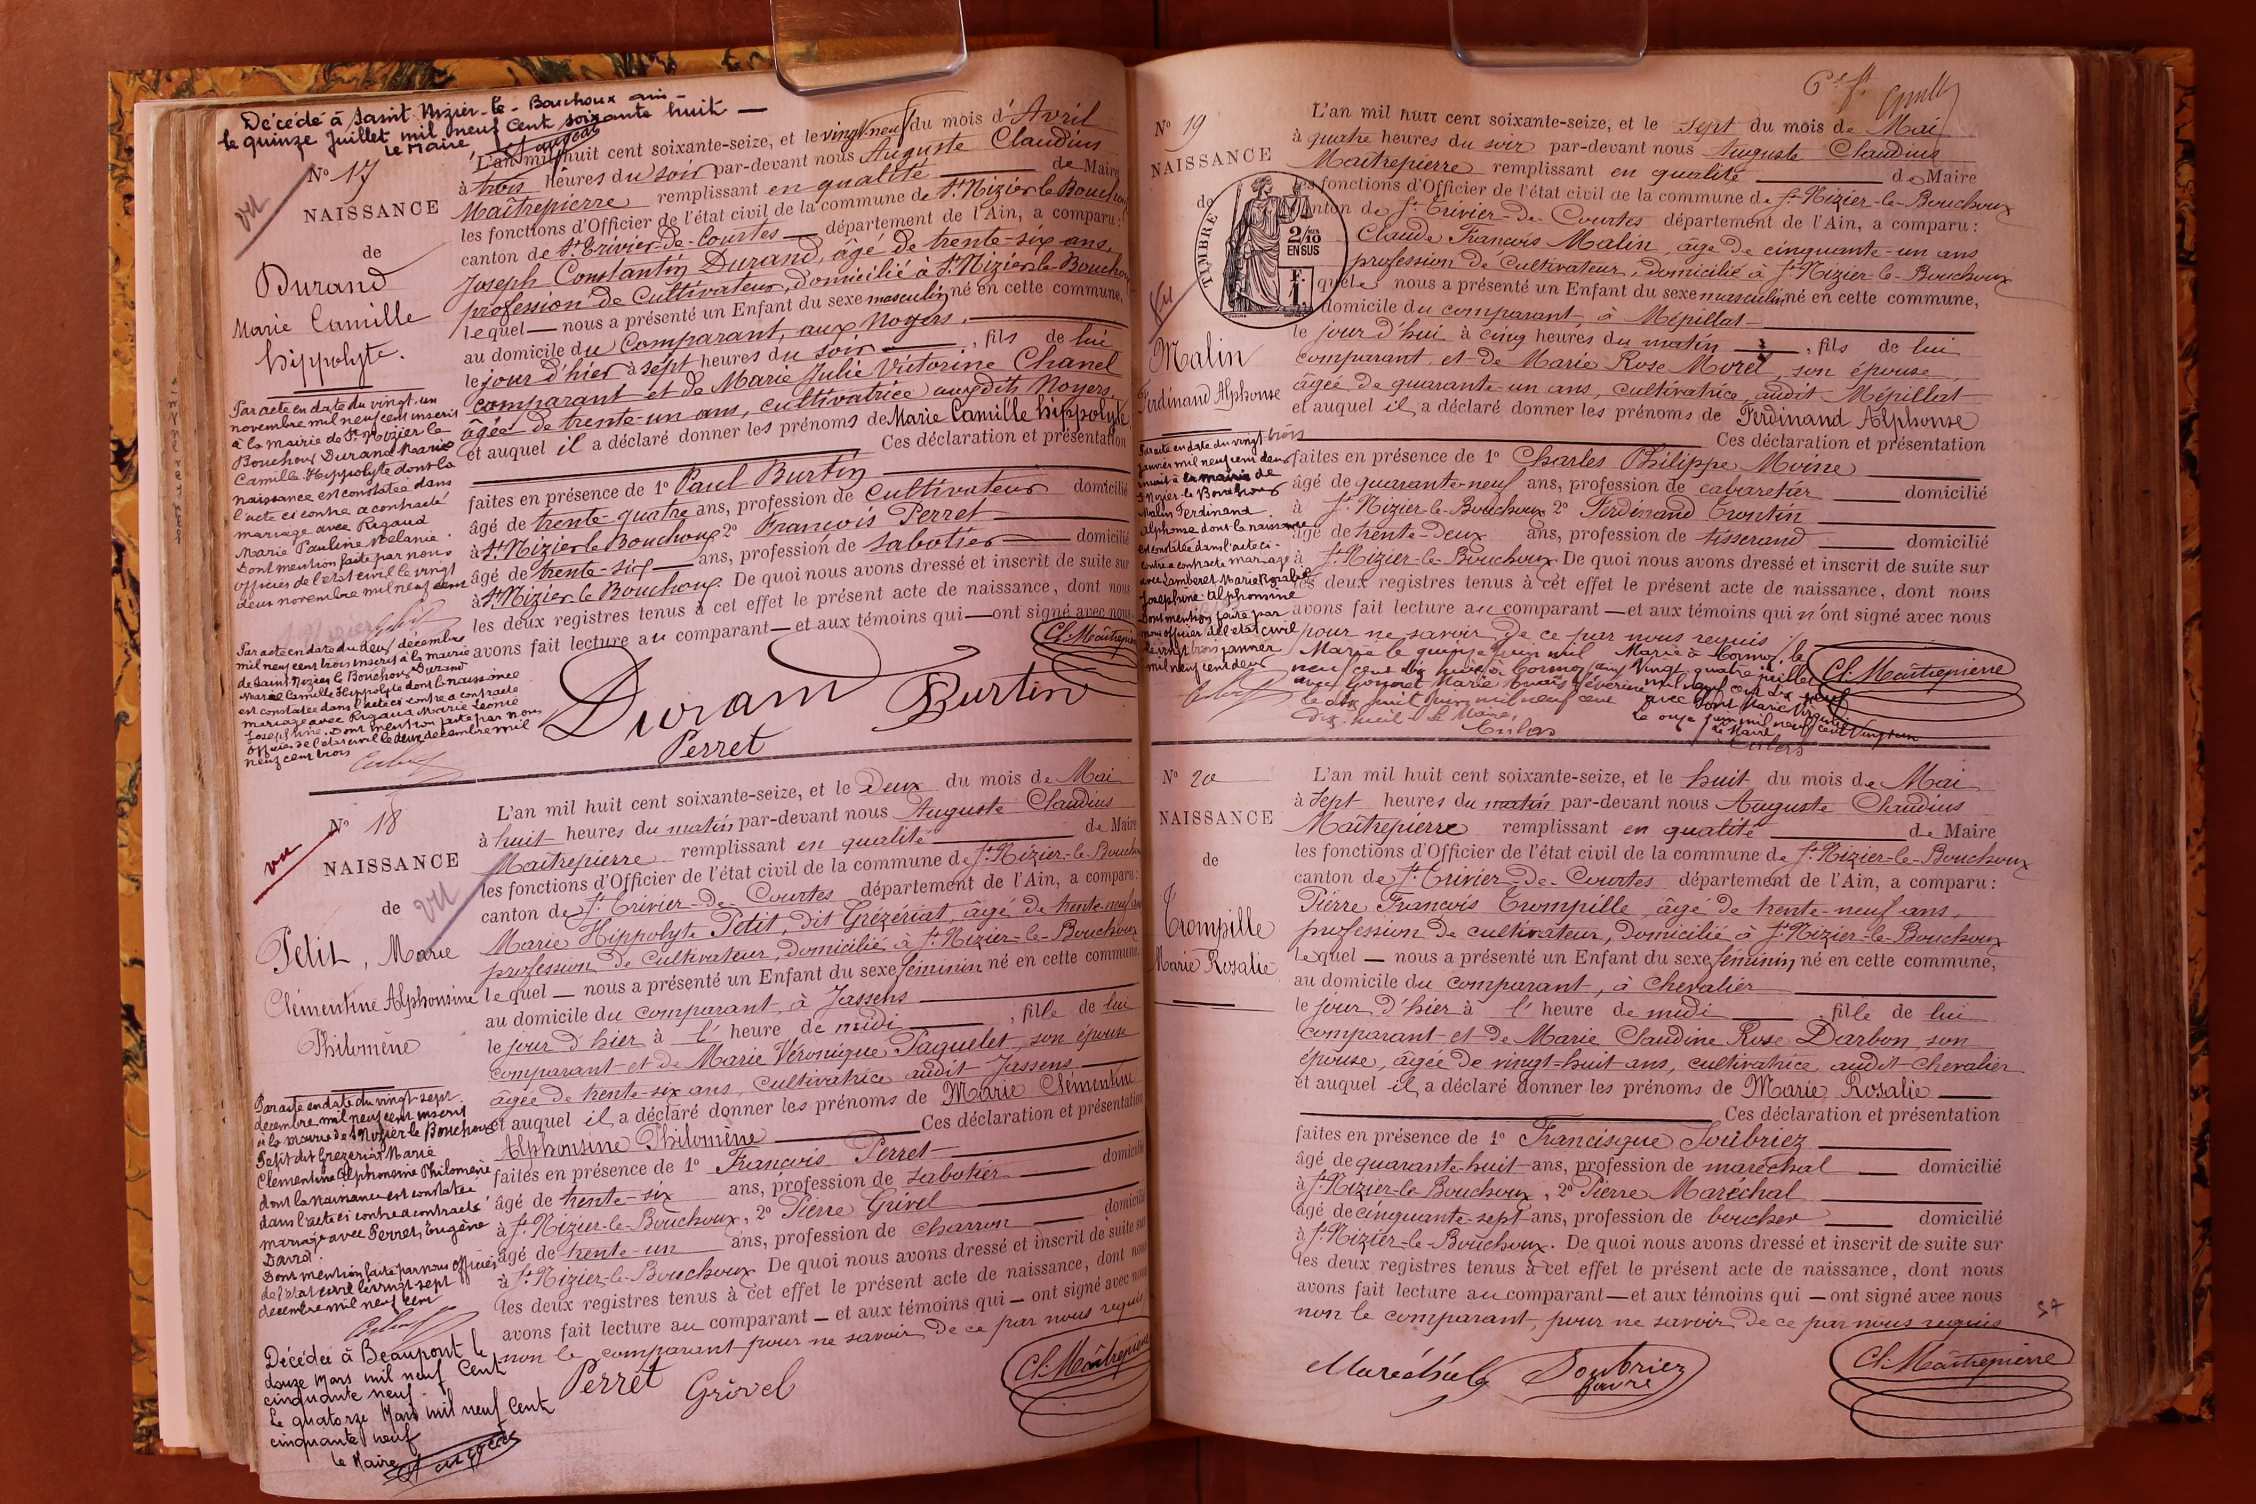 Décédé à Saint Nizier-le-Bouchoux ain-
le quinze Juillet mil neuf Cent soixante huit —
Le Maire
No 17
vu
NAISSANCE
de
Durand
Marie Camille
hippolyte.
Par acte en date du vingt-un
novembre mil neuf cent inscrit
à la mairie de St Nizier le
Bouchoux Durand Marie
Camille Hippolyte dont la
naissance est constatée dans
l'acte ci contre a contracté
mariage avec Rigaud
Marie Pauline Mélanie.
Dont mention faite par nous
officier de l'état civil le vingt
deux novembre mil neuf cent
Par acte en date du deux décembre
mil neuf cent trois inscrit à la mairie
de Saint Nizier le Bouchoux Durand
Marie Camille Hippolyte dont la naissance
est constatée dans l'acte ci contre a contracté
mariage avec Rigaud Marie Leonie
Josephine. Dont mention faite par nous
officier de l'état civil le deux décembre mil
neuf cent trois
L'an mil huit cent soixante-seize, et le vingt-neuf du mois d'Avril
à trois heures du soir par-devant nous Auguste Claudius
Maîtrepierre remplissant en qualité — de Maire
les fonctions d'Officier de l'état civil de la commune de St Nizier le Bouchoux
canton de St Trivier-de-Courtes — département de l'Ain, a comparu:
Joseph Constantin Durand, âgé de trente-six ans,
profession de Cultivateur, domicilié à St Nizier-le-Bouchoux
lequel — nous a présenté un Enfant du sexe masculin, né en cette commune,
au domicile du Comparant, aux Noyers, —
le jour d'hier à sept heures du soir — , fils de lui
comparant et de Marie Julie Victorine Chanel
âgée de trente-un ans, cultivatrice auxdits Noyers,
et auquel il a déclaré donner les prénoms de Marie Camille hippolyte
— Ces déclaration et présentation
faites en présence de 1o Paul Burtin —
âgé de trente-quatre ans, profession de cultivateur domicilié
à St Nizier le Bouchoux 2o François Perret —
âgé de trente-six — ans, profession de sabotier — domicilié
à St Nizier-le Bouchoux. De quoi nous avons dressé et inscrit de suite sur
les deux registres tenus à cet effet le présent acte de naissance, dont nous
avons fait lecture au comparant — et aux témoins qui — ont signé avec nous
Cl. Maîtrepierre
Durand Burtin
Perret
No 18
vu
NAISSANCE
de
vu
Petit, Marie
Clémentine Alphonsine
Philomène
Par acte en date du vingt-sept
décembre mil neuf cent inscrit
à la mairie de St Nizier le Bouchoux
Petit dit Grezeriat Marie
Clementine Alphonsine Philomène
dont la naissance est constatée
dans l'acte ci contre a contracté
mariage avec Perret, Eugène
David.
Dont mention faite par nous officier
de l'état civil le vingt sept
décembre mil neuf cent
Décédée à Beaupont le
douze Mars mil neuf Cent
cinquante neuf.
Le quatorze Mars mil neuf Cent
cinquante neuf
le Maire
L'an mil huit cent soixante-seize, et le Deux du mois de Mai
à huit heures du matin par-devant nous Auguste Claudius
Maîtrepierre remplissant en qualité — de Maire
les fonctions d'Officier de l'état civil de la commune de St Nizier-le-Bouchoux
canton de St Trivier-de-Courtes département de l'Ain, a comparu:
Marie Hippolyte Petit, dit Grézériat, âgé de trente-neuf ans
profession de Cultivateur, domicilié à St Nizier-le-Bouchoux
lequel — nous a présenté un Enfant du sexe féminin né en cette commune,
au domicile du comparant, à Jassens —
le jour d'hier à l'heure de midi — , fille de lui
comparant et de Marie Véronique Paquelet, son épouse
âgée de trente-six ans, cultivatrice audit Jassens —
et auquel il a déclaré donner les prénoms de Marie Clémentine
Alphonsine Philomène — Ces déclaration et présentation
faites en présence de 1o François Perret —
âgé de trente-six ans, profession de sabotier — domicilié
à St Nizier-le-Bouchoux, 2o Pierre Grivel —
âgé de trente-un ans, profession de charron — domicilié
à St Nizier-le-Bouchoux De quoi nous avons dressé et inscrit de suite sur
les deux registres tenus à cet effet le présent acte de naissance, dont nous
avons fait lecture au comparant — et aux témoins qui — ont signé avec nous
non le comparant pour ne savoir de ce par nous requis
Perret Grivel Cl. Maîtrepierre
No 19
NAISSANCE
de
TIMBRE
2/10 EN SUS
F. 1
Vu
Malin
Ferdinand Alphonse
Par acte en date du vingt trois
janvier mil neuf cent deux
inscrit à la mairie de
St Nizier-le Bouchoux
Malin Ferdinand
Alphonse dont la naissance
est constatée dans l'acte ci-
contre a contracté mariage
avec Lamberet Marie Rosalie
Josephine Alphonsine
Dont mention faite par
nous officier de l'état civil
le vingt trois janvier
mil neuf cent deux
L'an mil huit cent soixante-seize, et le sept du mois de Mai
à quatre heures du soir par-devant nous Auguste Claudius
Maîtrepierre remplissant en qualité — de Maire
les fonctions d'Officier de l'état civil de la commune de St Nizier-le-Bouchoux
canton de St Trivier-de-Courtes département de l'Ain, a comparu:
Claude François Malin, âgé de cinquante-un ans
profession de Cultivateur, domicilié à St Nizier-le-Bouchoux
lequel nous a présenté un Enfant du sexe masculin, né en cette commune,
domicile du comparant à Mépillat —
le jour d'hui à cinq heures du matin — , fils de lui
comparant et de Marie Rose Morel, son épouse,
âgée de quarante-un ans, cultivatrice, audit Mépillat
et auquel il a déclaré donner les prénoms de Ferdinand Alphonse
— Ces déclaration et présentation
faites en présence de 1o Charles Philippe Moine
âgé de quarante-neuf ans, profession de cabaretier — domicilié
à St Nizier-le-Bouchoux 2o Ferdinand Trontin
âgé de trente-deux ans, profession de tisserand — domicilié
à St Nizier-le-Bouchoux De quoi nous avons dressé et inscrit de suite sur
les deux registres tenus à cet effet le présent acte de naissance, dont nous
avons fait lecture au comparant — et aux témoins qui n'ont signé avec nous
pour ne savoir de ce par nous requis
Marié le quinze juin mil
neuf cent dix huit à Cormoz (ain)
le dix huit juin mil neuf cent
dix huit - Le Maire,
Marié à Cormoz, le
Vingt quatre juillet
mil neuf cent dix neuf
le onze juin mil neuf cent Vingt un
Le Maire
Cl. Maîtrepierre
No 20
NAISSANCE
de
Trompille
Marie Rosalie
L'an mil huit cent soixante-seize, et le huit du mois de Mai
à sept heures du matin par-devant nous Auguste Claudius
Maîtrepierre remplissant en qualité — de Maire
les fonctions d'Officier de l'état civil de la commune de St Nizier-le-Bouchoux
canton de St Trivier-de-Courtes département de l'Ain, a comparu:
Pierre François Trompille, âgé de trente-neuf ans,
profession de cultivateur, domicilié à St Nizier-le-Bouchoux
lequel — nous a présenté un Enfant du sexe féminin, né en cette commune,
au domicile du comparant, à Chevalier —
le jour d'hier à l'heure de midi — fille de lui
comparant et de Marie Claudine Rose Darbon, son
épouse, âgée de vingt-huit ans, cultivatrice audit chevalier
et auquel il a déclaré donner les prénoms de Marie Rosalie —
— Ces déclaration et présentation
faites en présence de 1o Francisque Soubriez —
âgé de quarante-huit ans, profession de maréchal — domicilié
à St Nizier-le Bouchoux, 2o Pierre Maréchal —
âgé de cinquante-sept ans, profession de boucher — domicilié
à St Nizier-le-Bouchoux. De quoi nous avons dressé et inscrit de suite sur
les deux registres tenus à cet effet le présent acte de naissance, dont nous
avons fait lecture au comparant — et aux témoins qui — ont signé avec nous
non le comparant, pour ne savoir de ce par nous requis
Maréchal Soubriez Cl. Maîtrepierre